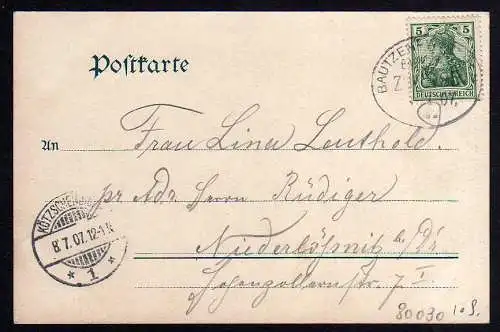 5 5
DEUTSCHES REICH
BAUTZEN
Z
07.
Postkarte
An Frau Lina Leuthold.
pr Adr. Herrn Rüdiger
Niederlößnitz b/Dr
Hohenzollernstr. 7 I
KÖTZSCHENBRODA
8.7.07.12-1N
* 1 *
80030